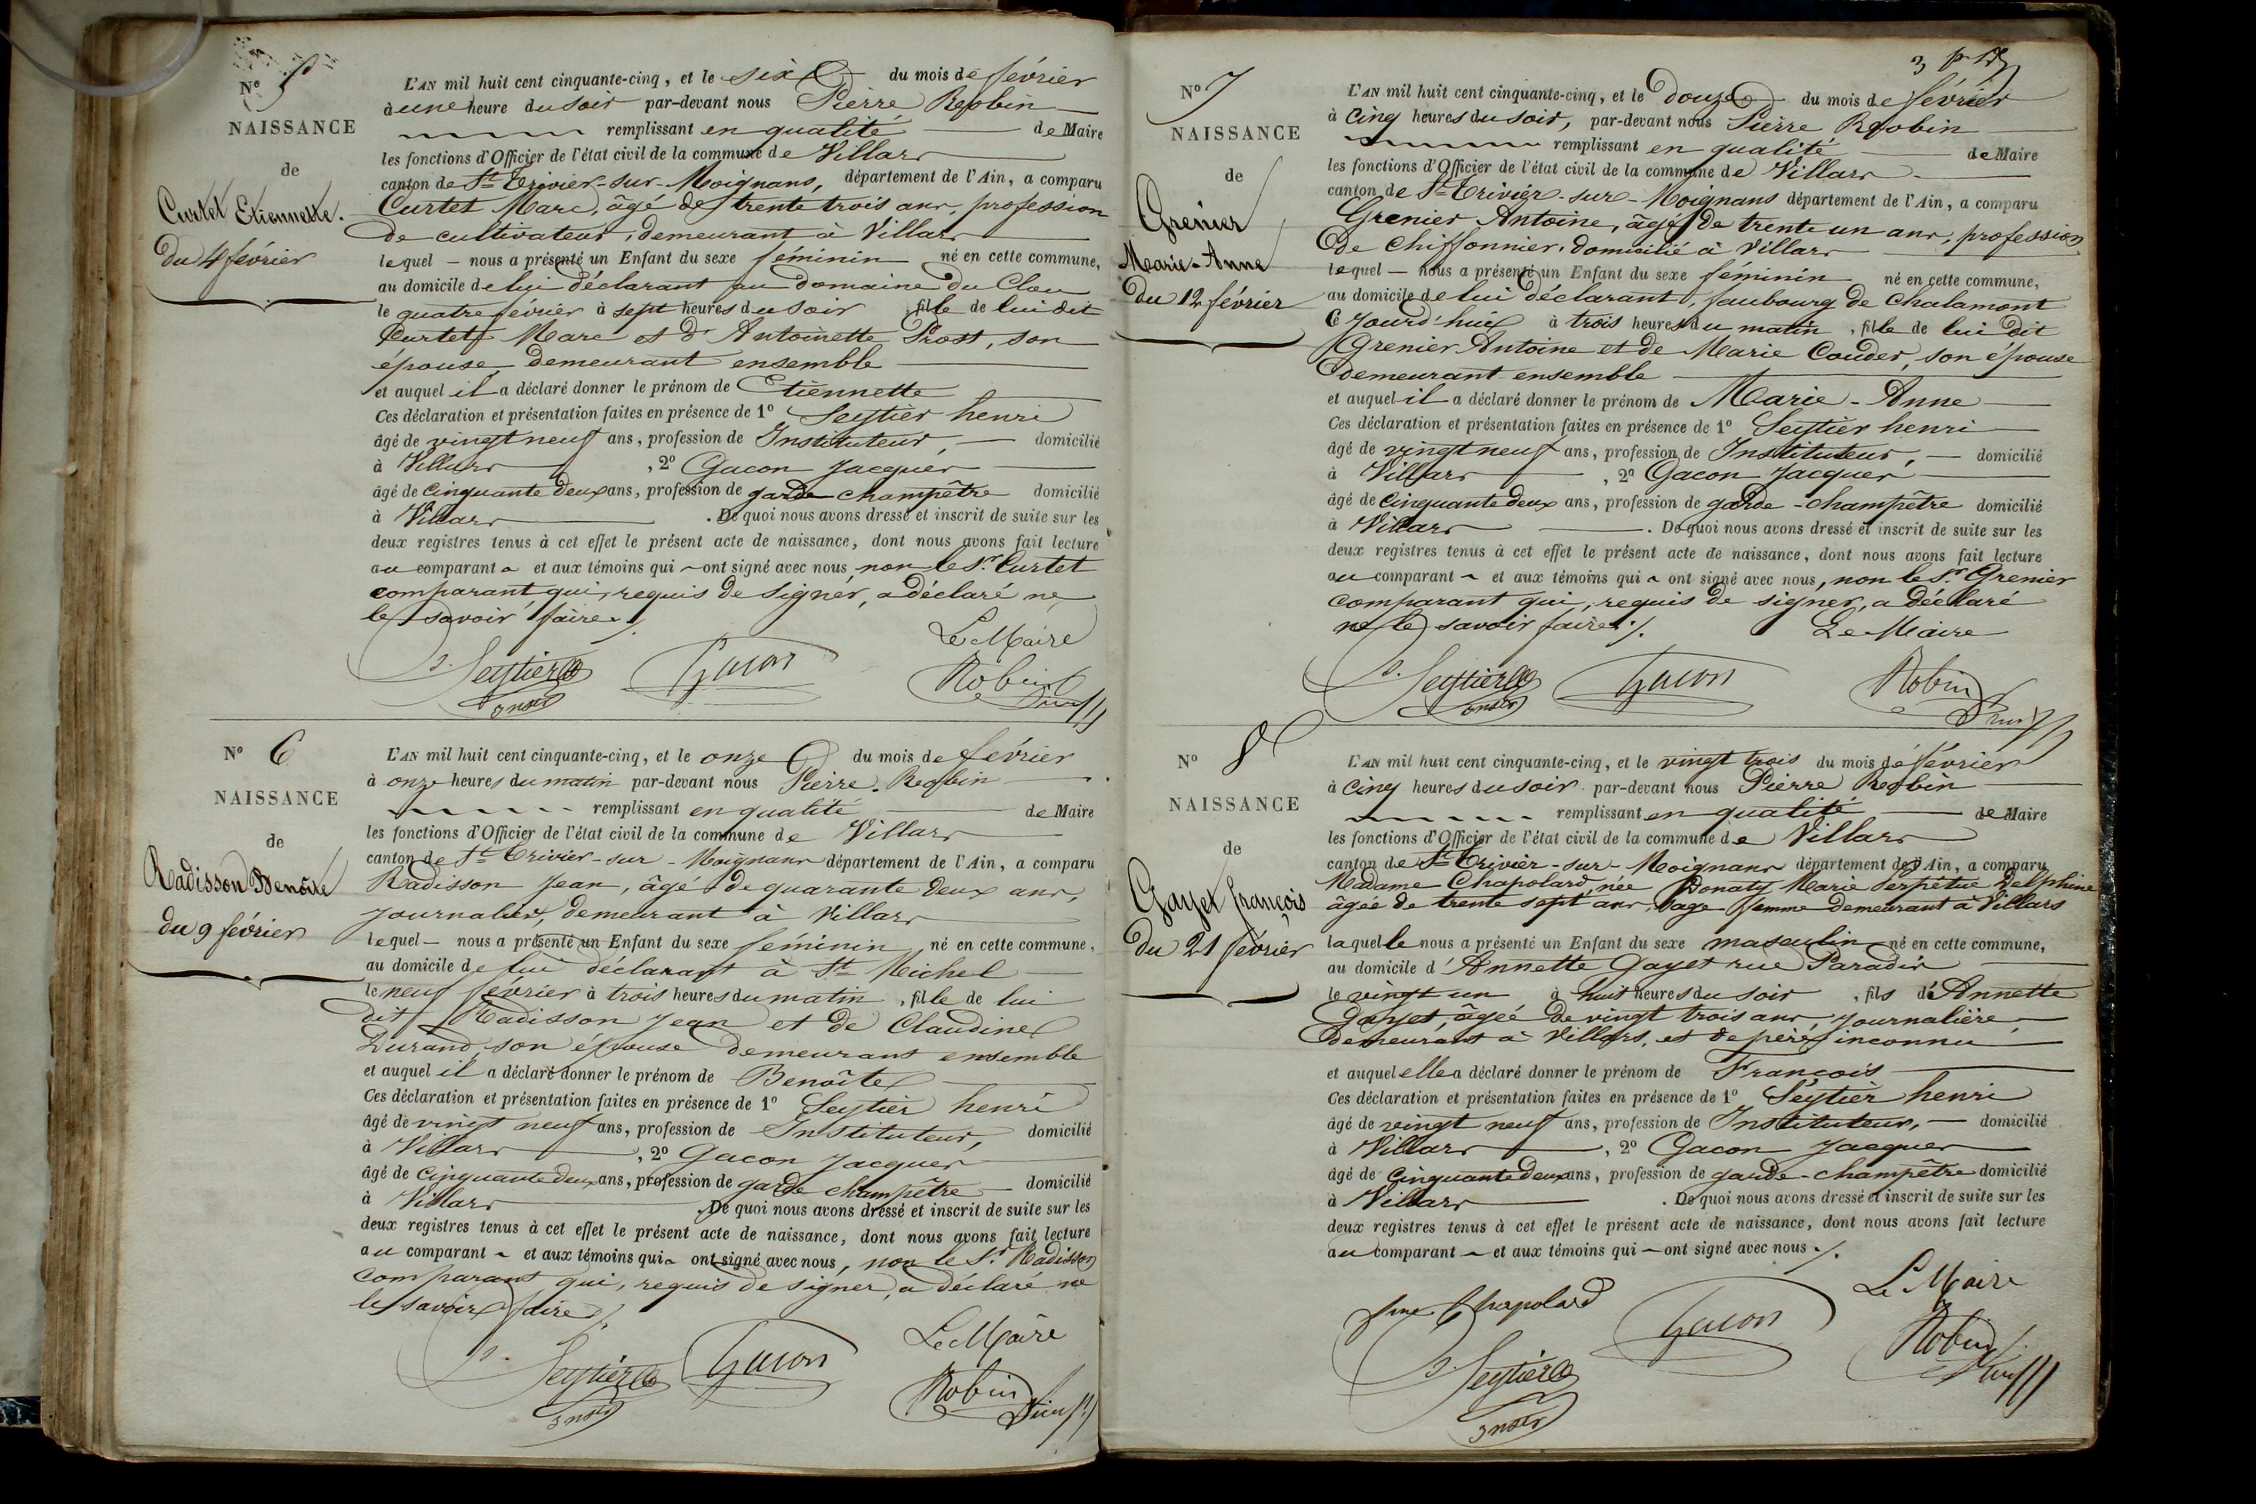 N° 5
NAISSANCE
de
Curtet Etiennette.
du 4 février
L'AN mil huit cent cinquante-cinq, et le six du mois de février
à une heure du soir par-devant nous Pierre Robin
remplissant en qualité de Maire
les fonctions d'Officier de l'état civil de la commune de Villars
canton de St Trivier-sur-Moignans, département de l'Ain, a comparu
Curtet Marc, âgé de trente trois ans, profession
de cultivateur, demeurant à Villars
lequel – nous a présenté un Enfant du sexe féminin né en cette commune,
au domicile de lui déclarant au domaine du Clou
le quatre février à sept heures du soir fille de lui dit
Curtet Marc et d' Antoinette Prost, son
épouse demeurant ensemble
et auquel il a déclaré donner le prénom de Etiennette
Ces déclaration et présentation faites en présence de 1° Seytier henri
âgé de vingt neuf ans, profession de Instituteur, domicilié
à Villars, 2° Gacon Jacques
âgé de cinquante deux ans, profession de garde champêtre domicilié
à Villars. De quoi nous avons dressé et inscrit de suite sur les
deux registres tenus à cet effet le présent acte de naissance, dont nous avons fait lecture
au comparant et aux témoins qui ont signé avec nous, non le Sr. Curtet
comparant qui, requis de signer, a déclaré ne
le savoir faire ./.
Le Maire
Seytier
Gacon
Robin
N° 6
NAISSANCE
de
Radisson Benoîte
du 9 février
L'AN mil huit cent cinquante-cinq, et le onze du mois de février
à onze heures du matin par-devant nous Pierre Robin
remplissant en qualité de Maire
les fonctions d'Officier de l'état civil de la commune de Villars
canton de St Trivier-sur-Moignans département de l'Ain, a comparu
Radisson Jean, âgé de quarante deux ans,
journalier, demeurant à Villars
lequel – nous a présenté un Enfant du sexe féminin, né en cette commune,
au domicile de lui déclarant à St Michel
le neuf février à trois heures du matin, fille de lui
dit Radisson Jean et de Claudine
Durand son épouse demeurant ensemble
et auquel il a déclaré donner le prénom de Benoîte
Ces déclaration et présentation faites en présence de 1° Seytier henri
âgé de vingt neuf ans, profession de Instituteur, domicilié
à Villars, 2° Gacon Jacques
âgé de cinquante deux ans, profession de garde champêtre domicilié
à Villars. De quoi nous avons dressé et inscrit de suite sur les
deux registres tenus à cet effet le présent acte de naissance, dont nous avons fait lecture
au comparant et aux témoins qui ont signé avec nous, non le Sr. Radisson
comparant qui, requis de signer, a déclaré ne
le savoir faire ./.
Le Maire
Seytier
Gacon
Robin
3
N° 7
NAISSANCE
de
Grenier
Marie-Anne
du 12 février
L'AN mil huit cent cinquante-cinq, et le douze du mois de février
à cinq heures du soir, par-devant nous Pierre Robin
remplissant en qualité de Maire
les fonctions d'Officier de l'état civil de la commune de Villars
canton de St Trivier-sur-Moignans département de l'Ain, a comparu
Grenier Antoine, âgé de trente un ans, profession
de chiffonnier, domicilié à Villars
lequel – nous a présenté un Enfant du sexe féminin né en cette commune,
au domicile de lui déclarant, faubourg de Chalamont
ce jourd'hui à trois heures du matin, fille de lui dit
Grenier Antoine et de Marie Couder, son épouse
demeurant ensemble
et auquel il a déclaré donner le prénom de Marie-Anne
Ces déclaration et présentation faites en présence de 1° Seytier henri
âgé de vingt neuf ans, profession de Instituteur, domicilié
à Villars, 2° Gacon Jacques
âgé de cinquante deux ans, profession de garde-champêtre domicilié
à Villars. De quoi nous avons dressé et inscrit de suite sur les
deux registres tenus à cet effet le présent acte de naissance, dont nous avons fait lecture
au comparant et aux témoins qui ont signé avec nous, non le Sr. Grenier
comparant qui, requis de signer, a déclaré
ne le savoir faire ./.
Le Maire
Seytier
Gacon
Robin
N° 8
NAISSANCE
de
Gayet françois
du 21 février
L'AN mil huit cent cinquante-cinq, et le vingt trois du mois de février
à cinq heures du soir par-devant nous Pierre Robin
remplissant en qualité de Maire
les fonctions d'Officier de l'état civil de la commune de Villars
canton de St Trivier-sur-Moignans département de l'Ain, a comparu
Madame Chapolard, née Donaty Marie Perpétue Delphine
âgée de trente sept ans, sage-femme demeurant à Villars
laquelle nous a présenté un Enfant du sexe masculin né en cette commune,
au domicile d'Annette Gayet rue Paradis
le vingt un à huit heures du soir, fils d'Annette
Gayet, âgée de vingt trois ans, journalière,
demeurant à Villars, et de père inconnu
et auquel elle a déclaré donner le prénom de François
Ces déclaration et présentation faites en présence de 1° Seytier henri
âgé de vingt neuf ans, profession de Instituteur, domicilié
à Villars, 2° Gacon Jacques
âgé de cinquante deux ans, profession de garde-champêtre domicilié
à Villars. De quoi nous avons dressé et inscrit de suite sur les
deux registres tenus à cet effet le présent acte de naissance, dont nous avons fait lecture
au comparant et aux témoins qui ont signé avec nous ./.
Le Maire
fme Chapolard
Gacon
Robin
Seytier